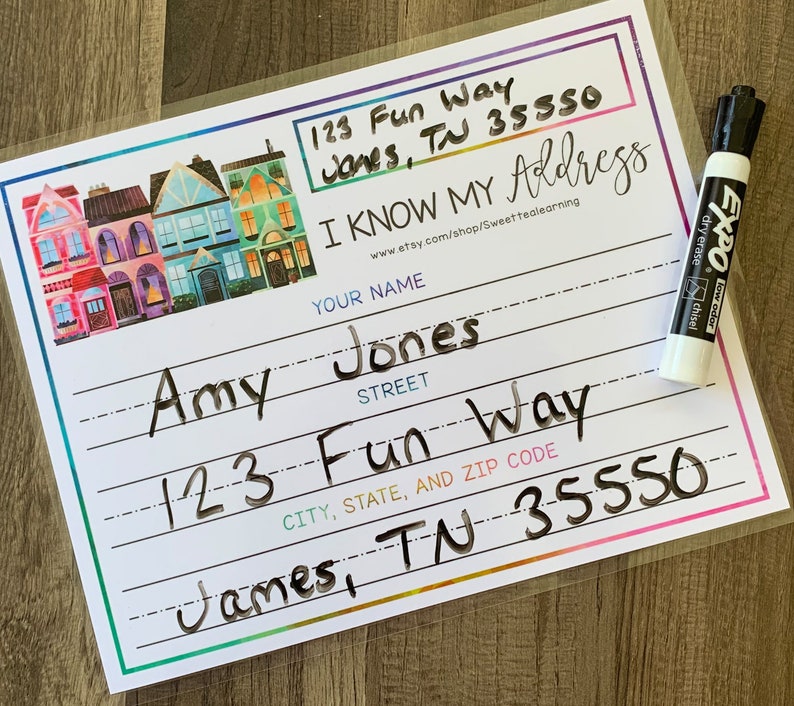 123 Fun Way
James, TN 35550
I KNOW MY Address
www.etsy.com/shop/Sweettealearning
YOUR NAME
Amy Jones
STREET
123 Fun Way
CITY, STATE, AND ZIP CODE
James, TN 35550
EXPO
dry erase
low odor
chisel